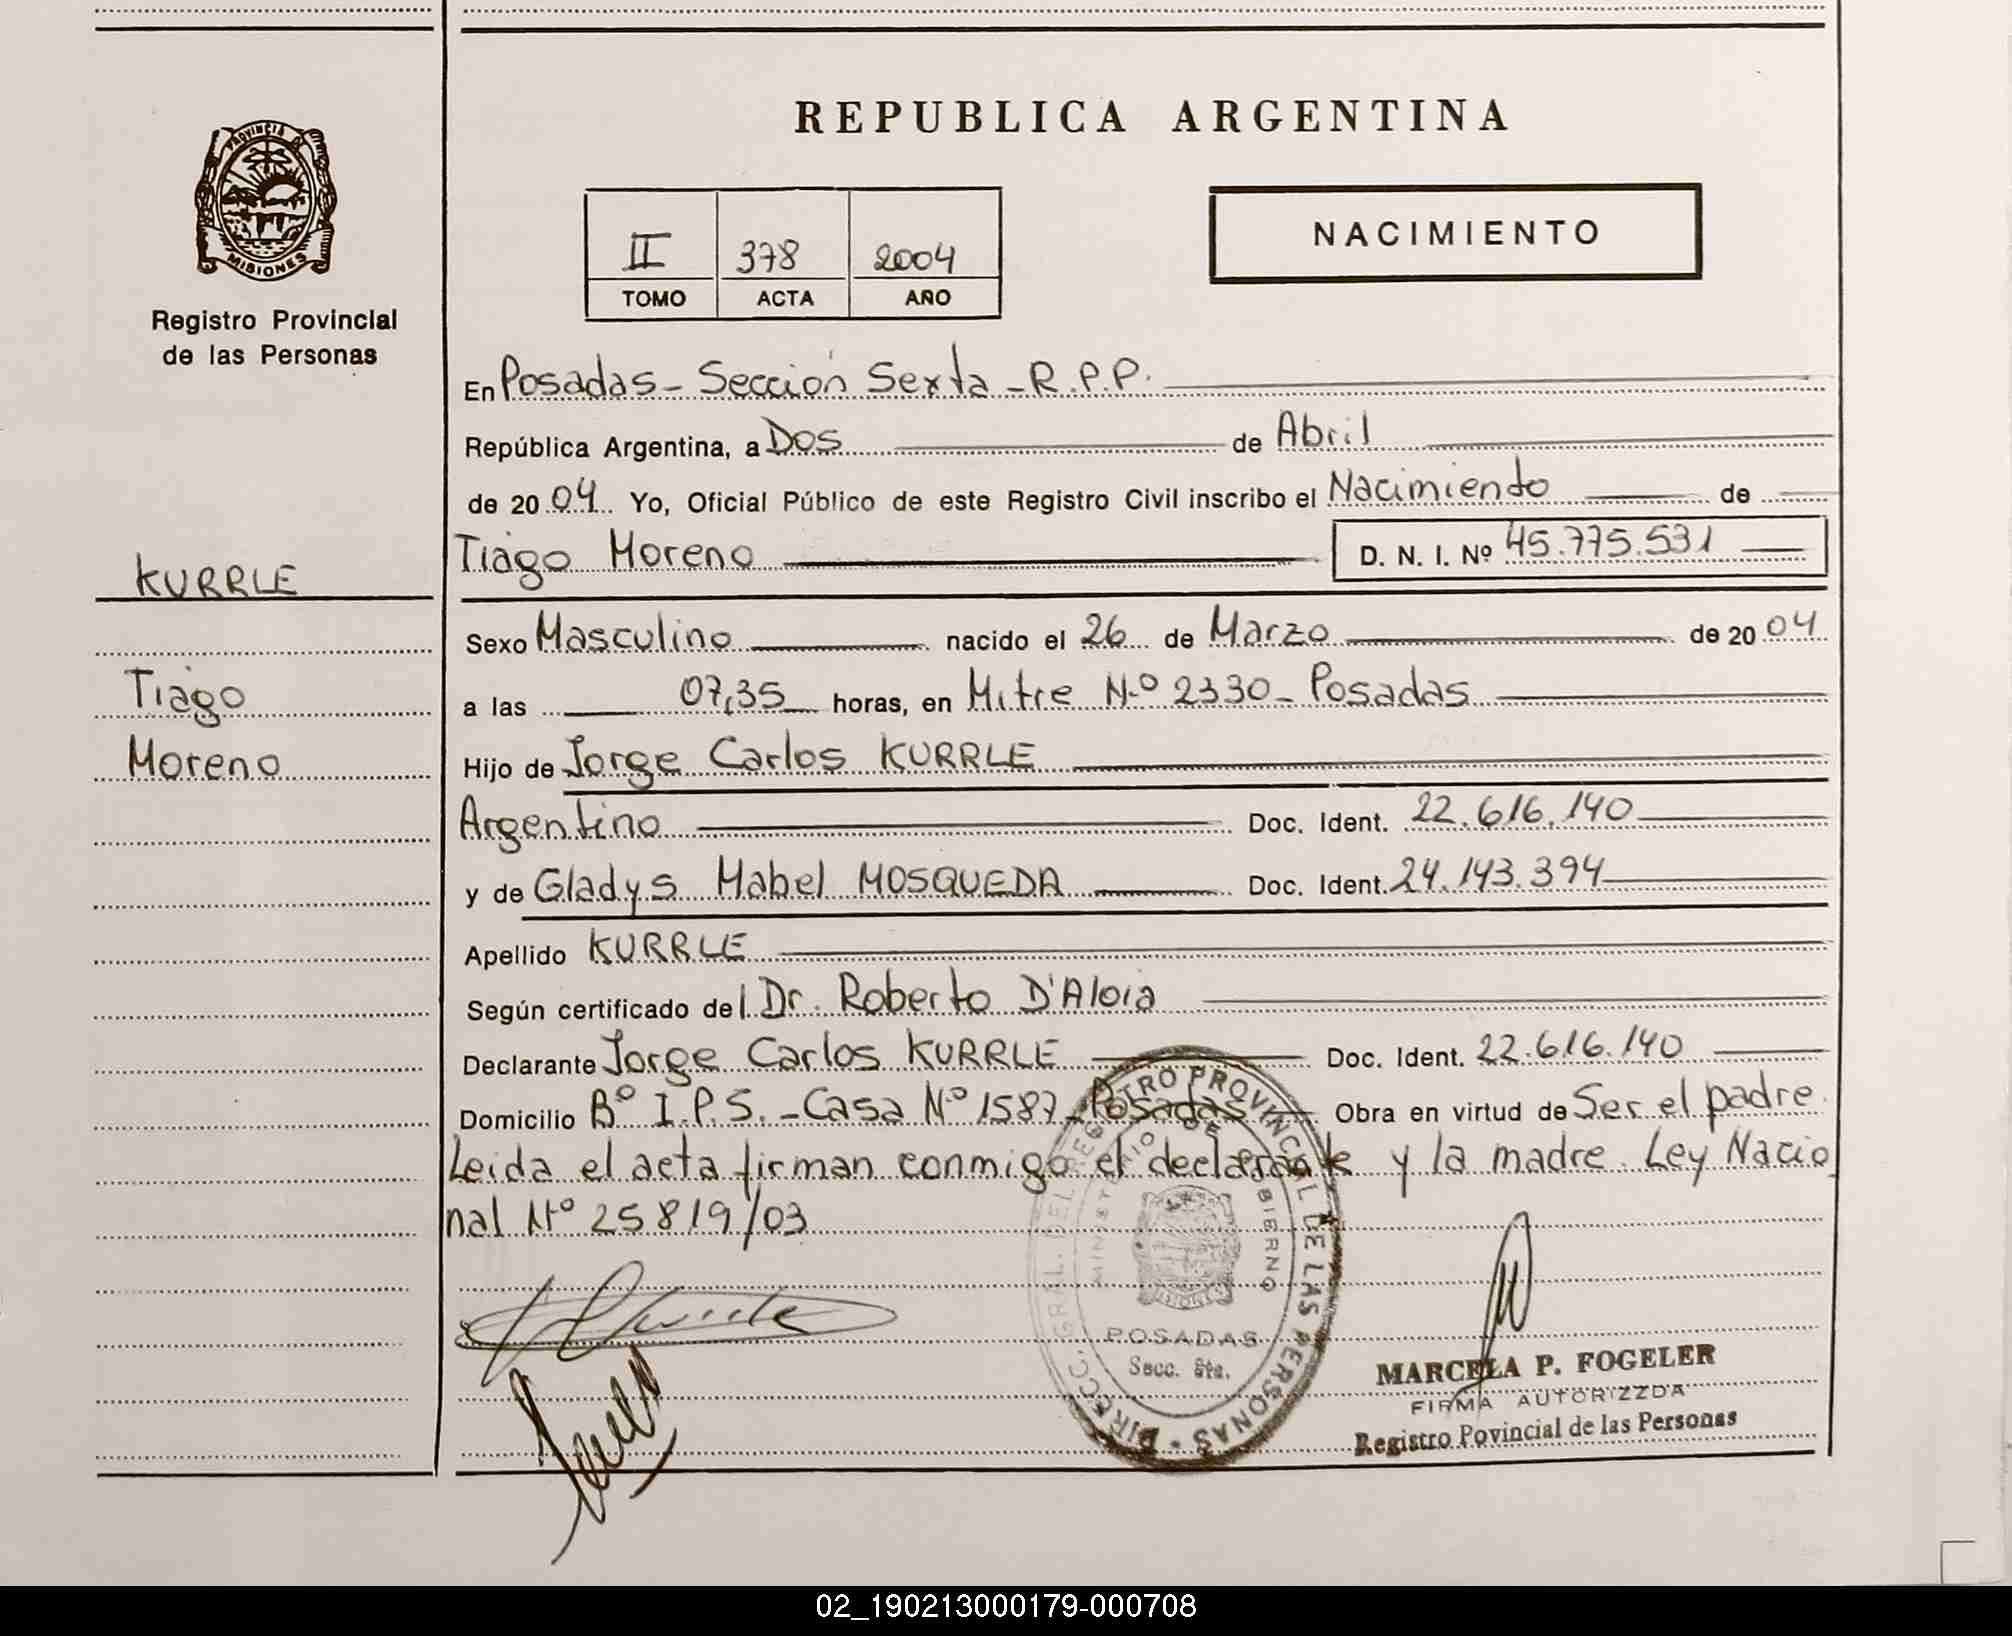 PROVINCIA DE
MISIONES
Registro Provincial
de las Personas
KURRLE
Tiago
Moreno
REPUBLICA ARGENTINA
II 378 2004
TOMO ACTA AÑO
NACIMIENTO
En Posadas - Sección Sexta - R.P.P.
República Argentina, a Dos de Abril
de 2004 Yo, Oficial Público de este Registro Civil inscribo el Nacimiento de
Tiago Moreno D. N. I. Nº 45.775.531
Sexo Masculino nacido el 26 de Marzo de 2004
a las 07,35 horas, en Mitre Nº 2330 - Posadas
Hijo de Jorge Carlos KURRLE
Argentino Doc. Ident. 22.616.140
y de Gladys Mabel MOSQUEDA Doc. Ident. 24.143.394
Apellido KURRLE
Según certificado del Dr. Roberto D'Aloia
Declarante Jorge Carlos KURRLE Doc. Ident. 22.616.140
Domicilio Bº I.P.S. - Casa Nº 1587 - Posadas Obra en virtud de Ser el padre.
Leida el acta firman conmigo el declarante y la madre. Ley Nacio
nal Nº 25819/03
DIRECC. GRAL. DEL REGISTRO PROVINCIAL DE LAS PERSONAS
MINISTERIO DE GOBIERNO
MISIONES
POSADAS
Secc. 6ta.
MARCELA P. FOGELER
FIRMA AUTORIZZDA
Registro Povincial de las Personas
02_190213000179-000708